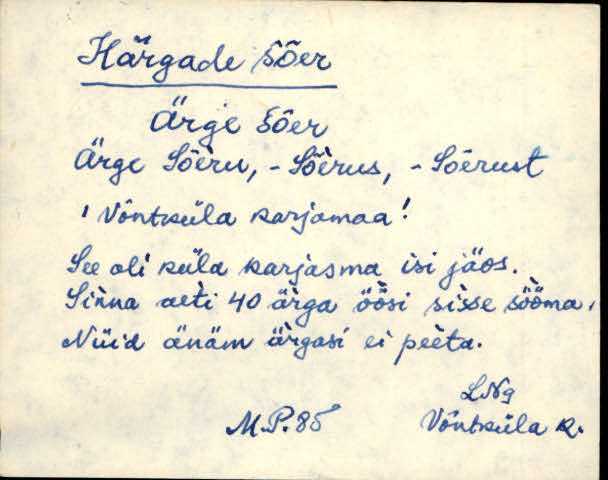 Härgade sõer
Ärge Sõer
Ärge Sõèru, - Sõèrus, - Sõerust
, Võntküla karjamaa!
See oli küla karjasma isi jäos.
Sìnna aeti 40 ärga öösi sìsse sööma,
Nüid änäm ärgasi ei peèta.
LNg
M.P. 85 Võntküla k.